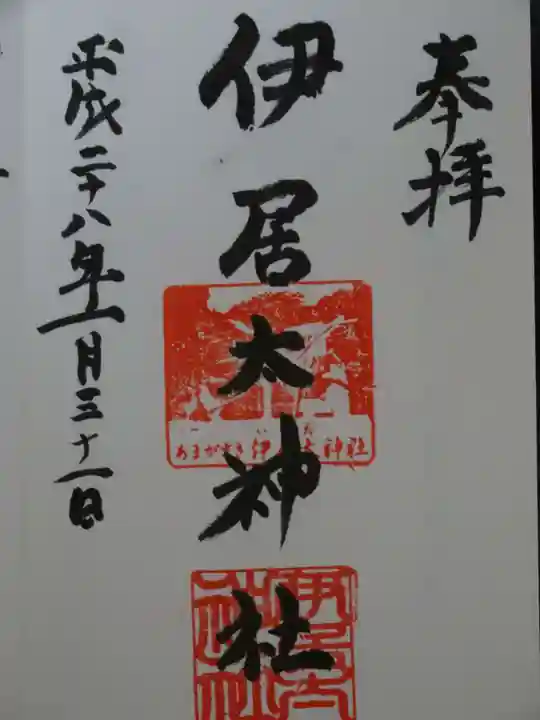 奉拝
伊居太神社
いたじ
あまがさき伊居太神社
平成二十八年一月三十一日